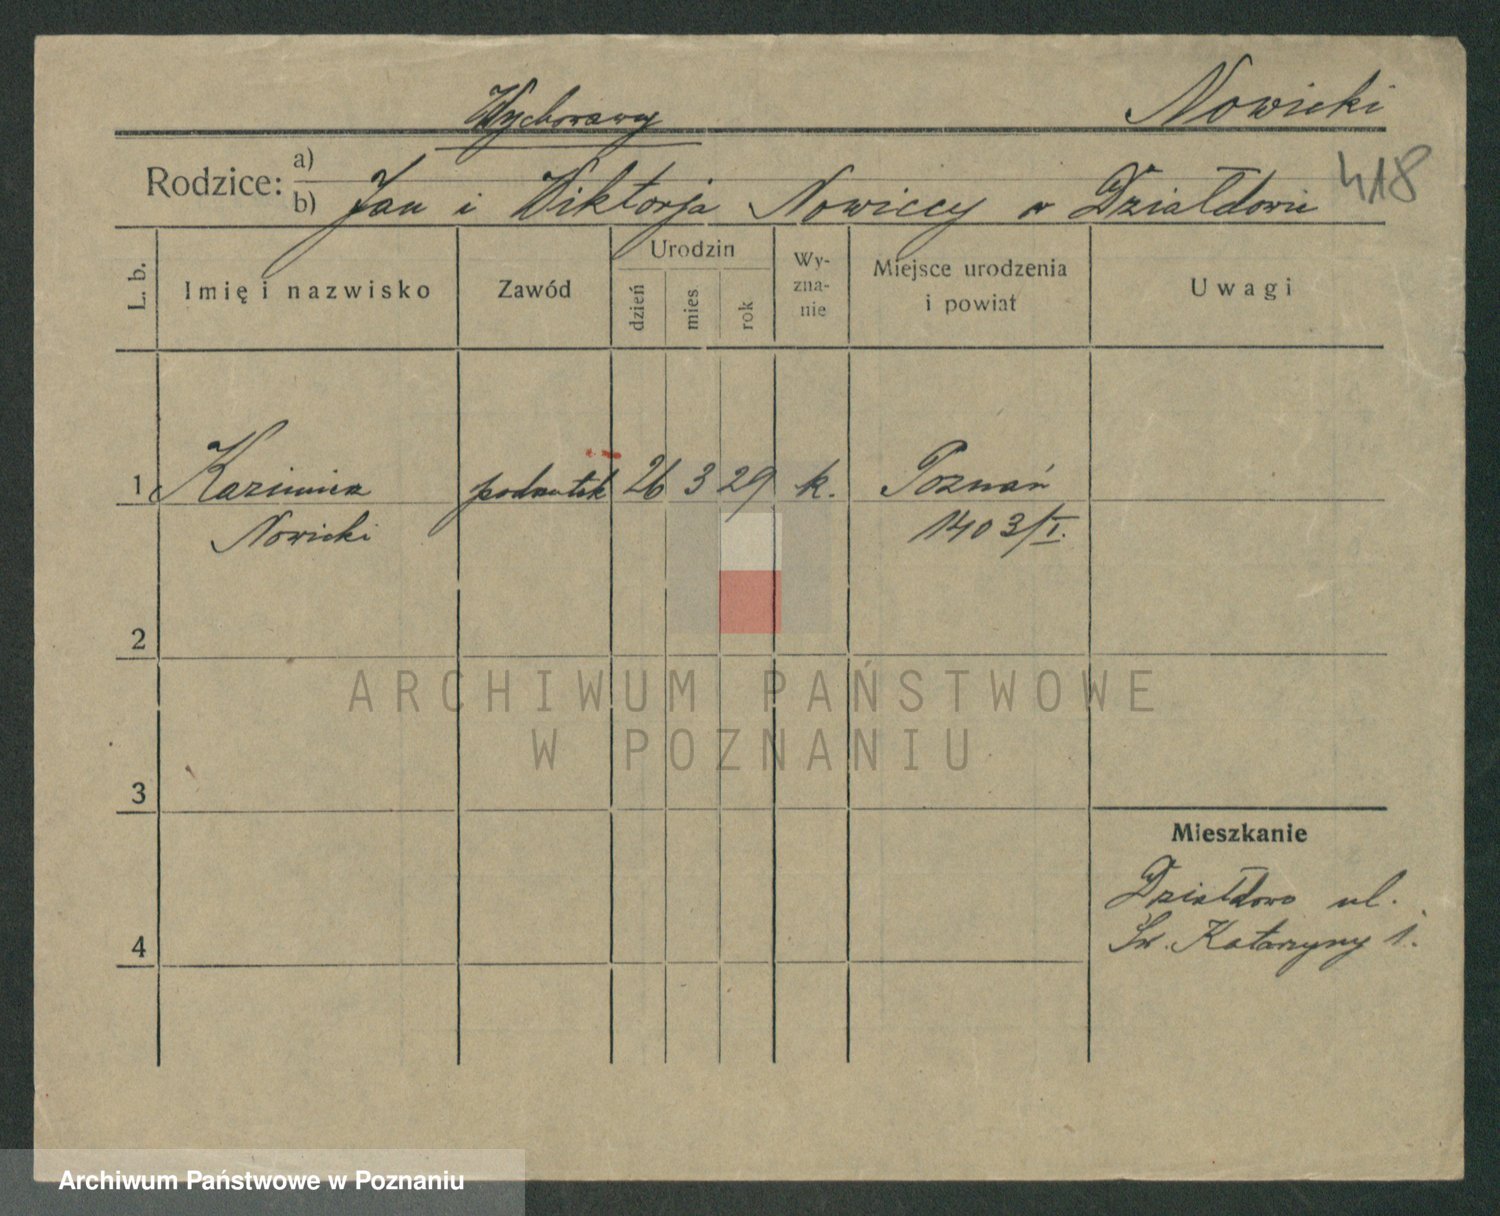 Nowicki
Wychowawcy
418
Rodzice: a)
b) Jan i Wiktorja Nowiccy w Działdowie
L. b. Imię i nazwisko Zawód Urodzin dzień mies rok Wy-zna-nie Miejsce urodzenia i powiat Uwagi
1 Kazimierz podrzutek 26 3 29 k. Poznań
Nowicki 1403/I.
2
ARCHIWUM PAŃSTWOWE
W POZNANIU
3
Mieszkanie
Działdowo ul.
Św. Katarzyny 1.
4
Archiwum Państwowe w Poznaniu